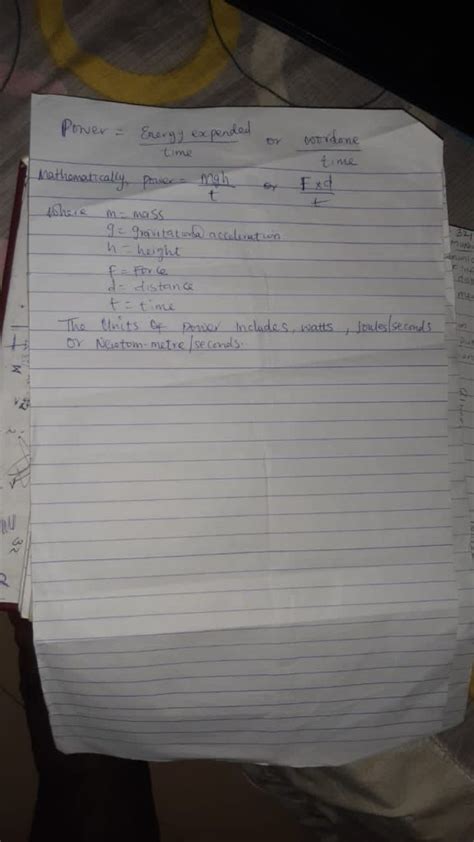 Power = Energy expended / time or workdone / time
Mathematically, power = mgh / t or F x d / t
Where m = mass
g = gravitational acceleration
h = height
F = Force
d = distance
t = time
The Units of power includes, watts, joules/seconds
or Newtom-metre/seconds.